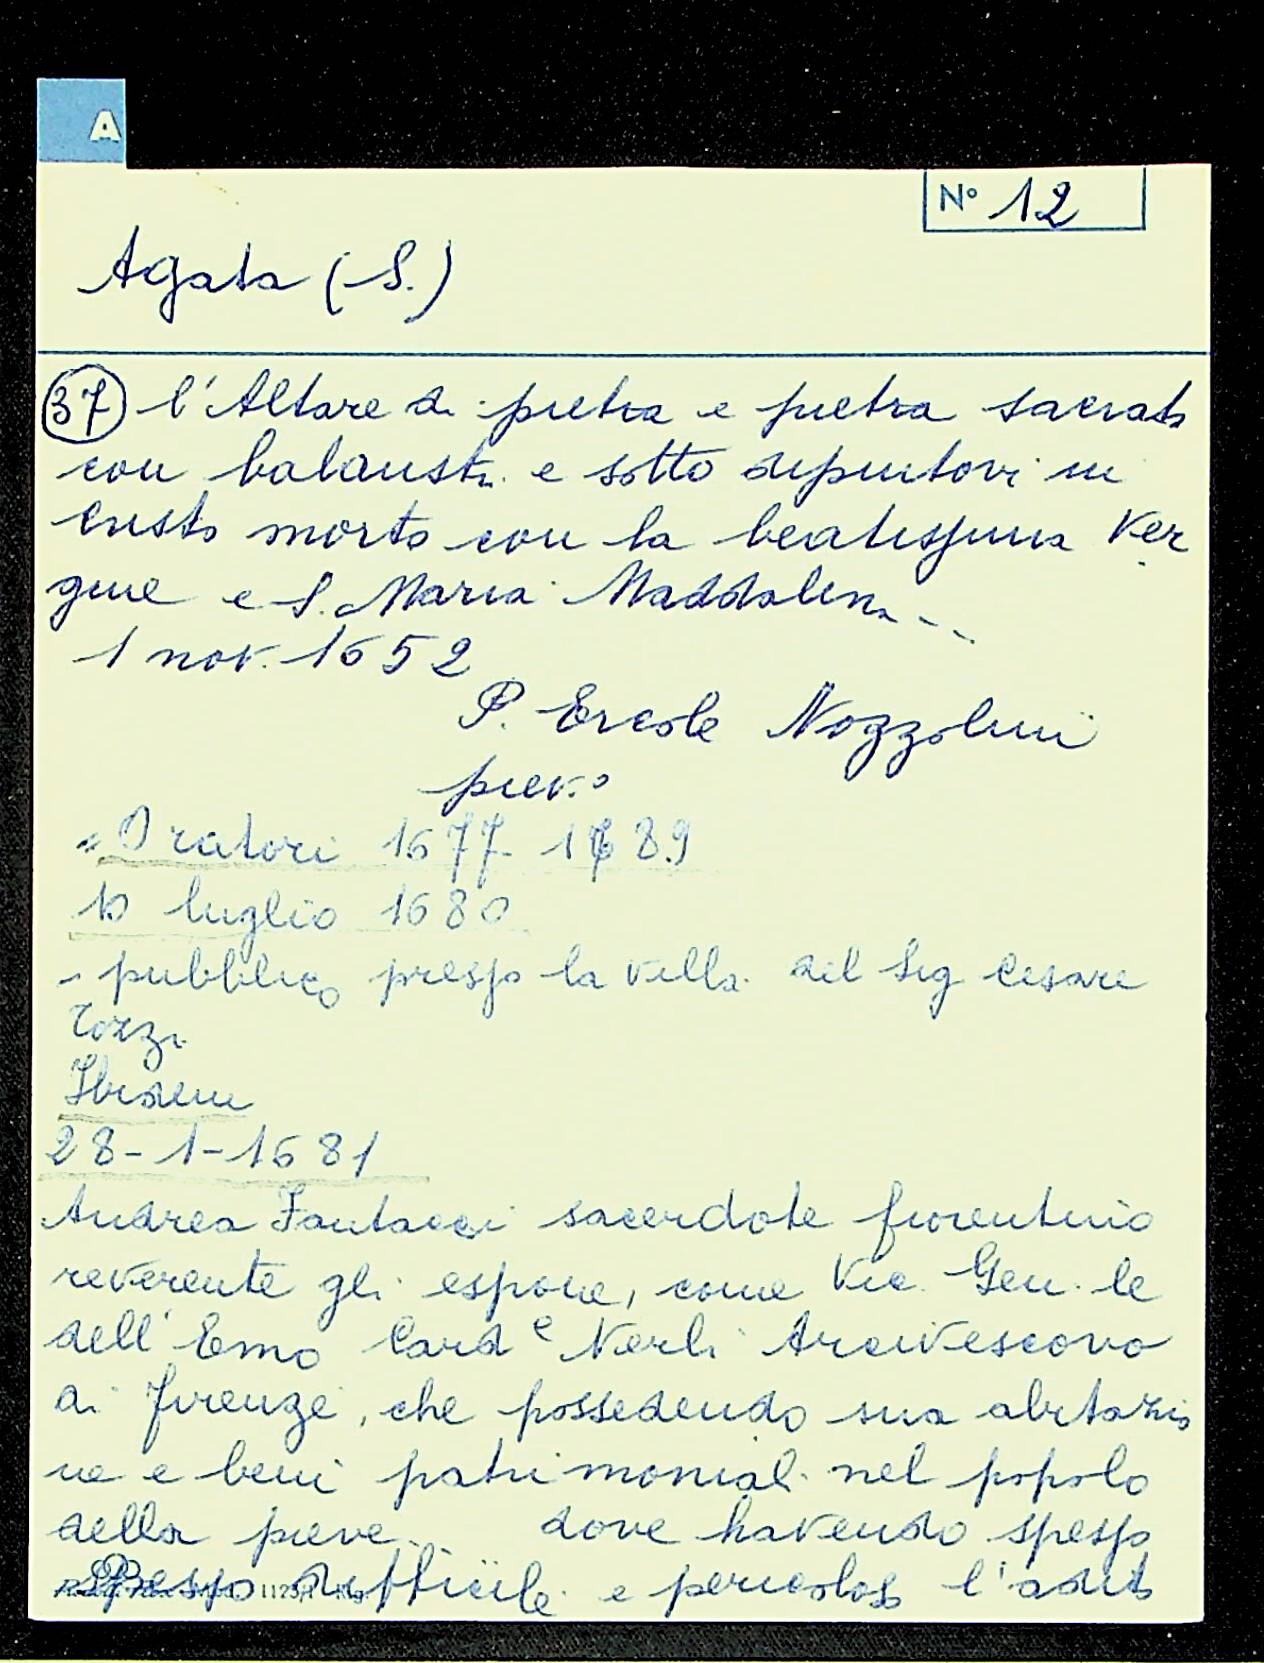 A
Nº 12
Agata (S.)
37 l'Altare di pietra e pietra sacrata
con balaustri e sotto dipintovi un
Cristo morto con la beatissima Ver
gine e S. Maria Maddalena...
1 nov. 1652
P. Ercole Nozzolini
piev.º
"Oratori 1677-1689
10 luglio 1680
- pubblico presso la villa del Sig Cesare
Tozzi
Ibidem
28-1-1681
Andrea Fantacci sacerdote fiorentino
reverente gli espone, come Vic. Gen.le
dell'Emo Card e Nerli Arcivescovo
di Firenze, che possedendo sua abitazio
ne e beni patrimoniali nel popolo
della pieve... dove havendo spesso
spesso difficile e pericoloso l'adito